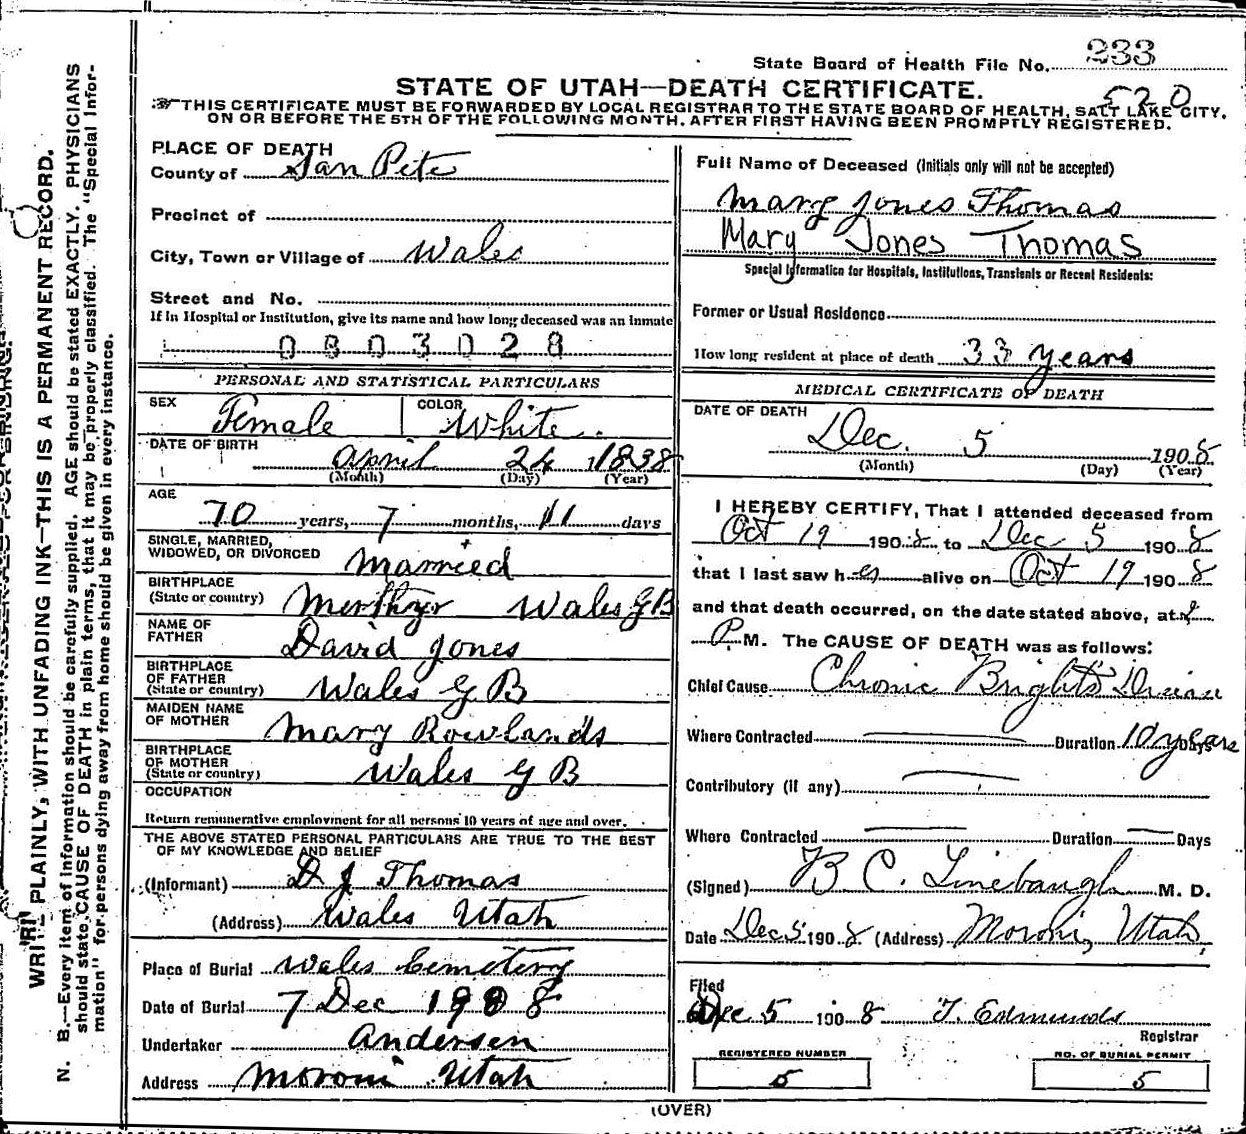 State Board of Health File No. 233
STATE OF UTAH—DEATH CERTIFICATE.
520
THIS CERTIFICATE MUST BE FORWARDED BY LOCAL REGISTRAR TO THE STATE BOARD OF HEALTH, SALT LAKE CITY,
ON OR BEFORE THE 5TH OF THE FOLLOWING MONTH, AFTER FIRST HAVING BEEN PROMPTLY REGISTERED.
WRITE PLAINLY, WITH UNFADING INK—THIS IS A PERMANENT RECORD.
N. B.—Every item of information should be carefully supplied. AGE should be stated EXACTLY. PHYSICIANS
should state CAUSE OF DEATH in plain terms, that it may be properly classified. The "Special Infor-
mation" for persons dying away from home should be given in every instance.
PLACE OF DEATH
County of San Pete
Precinct of
City, Town or Village of Wales
Street and No.
If in Hospital or Institution, give its name and how long deceased was an inmate
0803028
PERSONAL AND STATISTICAL PARTICULARS
SEX Female COLOR White.
DATE OF BIRTH April 24 1838
(Month) (Day) (Year)
AGE
70 years, 7 months, 11 days
SINGLE, MARRIED,
WIDOWED, OR DIVORCED Married
BIRTHPLACE
(State or country) Merthyr Wales G B
NAME OF
FATHER David Jones
BIRTHPLACE
OF FATHER
(State or country) Wales G B
MAIDEN NAME
OF MOTHER Mary Rowlands
BIRTHPLACE
OF MOTHER
(State or country) Wales G B
OCCUPATION
Return remunerative employment for all persons 10 years of age and over.
THE ABOVE STATED PERSONAL PARTICULARS ARE TRUE TO THE BEST
OF MY KNOWLEDGE AND BELIEF
(Informant) D J Thomas
(Address) Wales Utah
Place of Burial Wales Cemetery
Date of Burial 7 Dec 1908
Undertaker Andersen
Address Moroni Utah
Full Name of Deceased (Initials only will not be accepted)
Mary Jones Thomas
Mary Jones Thomas
Special Information for Hospitals, Institutions, Transients or Recent Residents:
Former or Usual Residence
How long resident at place of death 33 years
MEDICAL CERTIFICATE OF DEATH
DATE OF DEATH
Dec. 5 1908
(Month) (Day) (Year)
I HEREBY CERTIFY, That I attended deceased from
Oct 19 1908, to Dec 5 1908
that I last saw her alive on Oct 19 1908
and that death occurred, on the date stated above, at 2
P. M. The CAUSE OF DEATH was as follows:
Chief Cause Chronic Bright's Disease
Where Contracted — Duration 10 years Days
Contributory (if any) —
Where Contracted — Duration — Days
(Signed) B C. Linebaugh M. D.
Date Dec 5. 1908. (Address) Moroni, Utah.
Filed
Dec 5 1908 T. Edmunds
Registrar
REGISTERED NUMBER
5
NO. OF BURIAL PERMIT
5
(OVER)